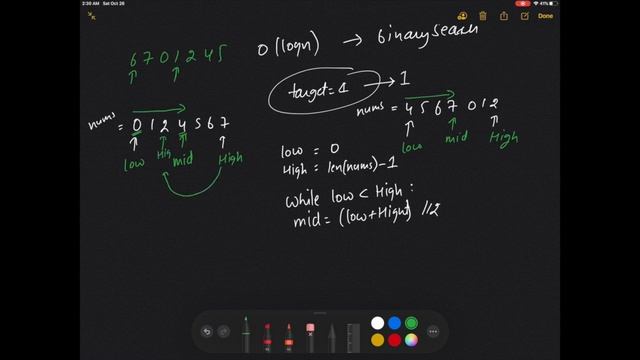 2:30 AM Sat Oct 26
41%
Done
6 7 0 1 2 4 5
O(logn) → binary search
target = 1 → 1
nums = 0 1 2 4 5 6 7
low High mid High
nums = 4 5 6 7 0 1 2
low mid High
low = 0
High = len(nums)-1
while low < High :
mid = (low + High) //2